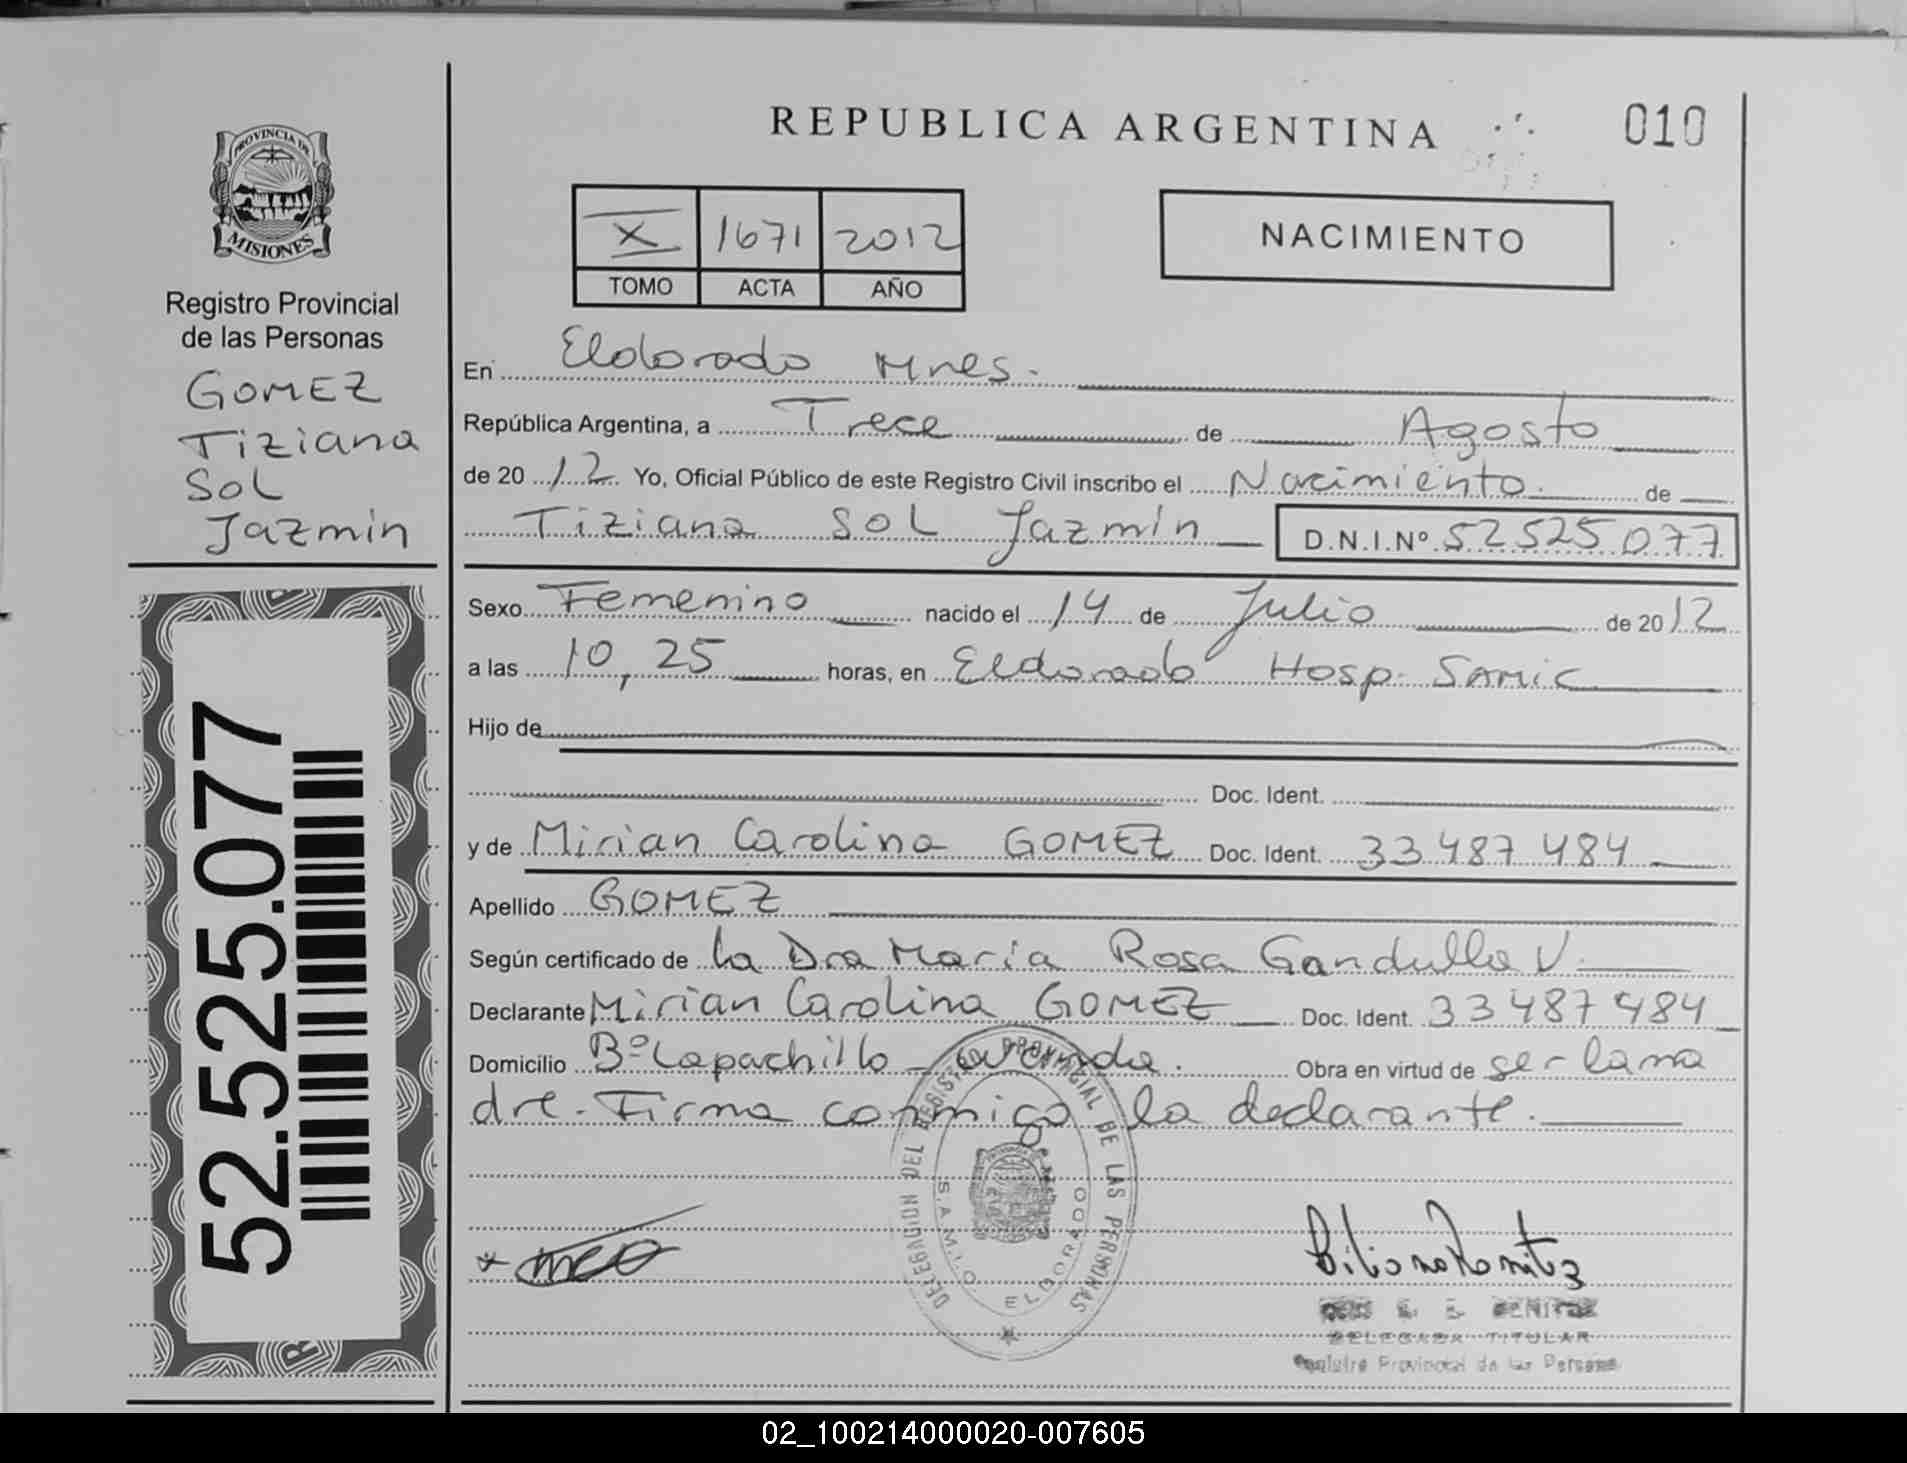 REPUBLICA ARGENTINA
010
PROVINCIA DE
MISIONES
Registro Provincial
de las Personas
GOMEZ
Tiziana
Sol
Jazmin
52.525.077
X 1671 2012
TOMO ACTA AÑO
NACIMIENTO
En Eldorado Mnes.
República Argentina, a Trece de Agosto
de 2012 Yo, Oficial Público de este Registro Civil inscribo el Nacimiento de
Tiziana Sol Jazmin D.N.I.Nº 52525077
Sexo Femenino nacido el 14 de Julio de 2012
a las 10,25 horas, en Eldorado Hosp. SAMIC
Hijo de
Doc. Ident.
y de Mirian Carolina GOMEZ Doc. Ident. 33487484
Apellido GOMEZ
Según certificado de La Dra Maria Rosa Gandulla V.
Declarante Mirian Carolina GOMEZ Doc. Ident. 33487484
Domicilio Bº Lapachillo Obra en virtud de ser la ma
dre. Firma conmigo la declarante.
DELEGACION DEL REGISTRO PROVINCIAL DE LAS PERSONAS
S.A.M.I.C. ELDORADO
BENITEZ
DELEGADA TITULAR
Registro Provincial de las Personas
02_100214000020-007605